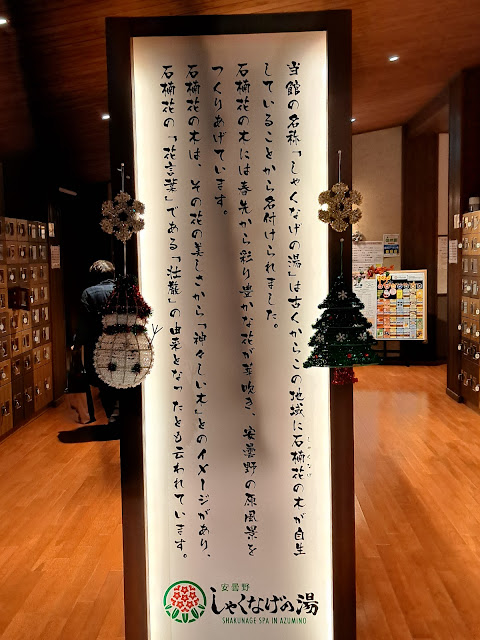 当館の名称「しゃくなげの湯」は古くからこの地域に石楠花の木が自生
しゃくなげ
していることから名付けられました。
石楠花の木には春先から彩り豊かな花が芽吹き、安曇野の原風景を
つくりあげています。
石楠花の木は、その花の美しさから「神々しい木」とのイメージがあり、
石楠花の「花言葉」である「壮麗」の由来となったとも云われています。
安曇野
しゃくなげの湯
SHAKUNAGE SPA IN AZUMINO